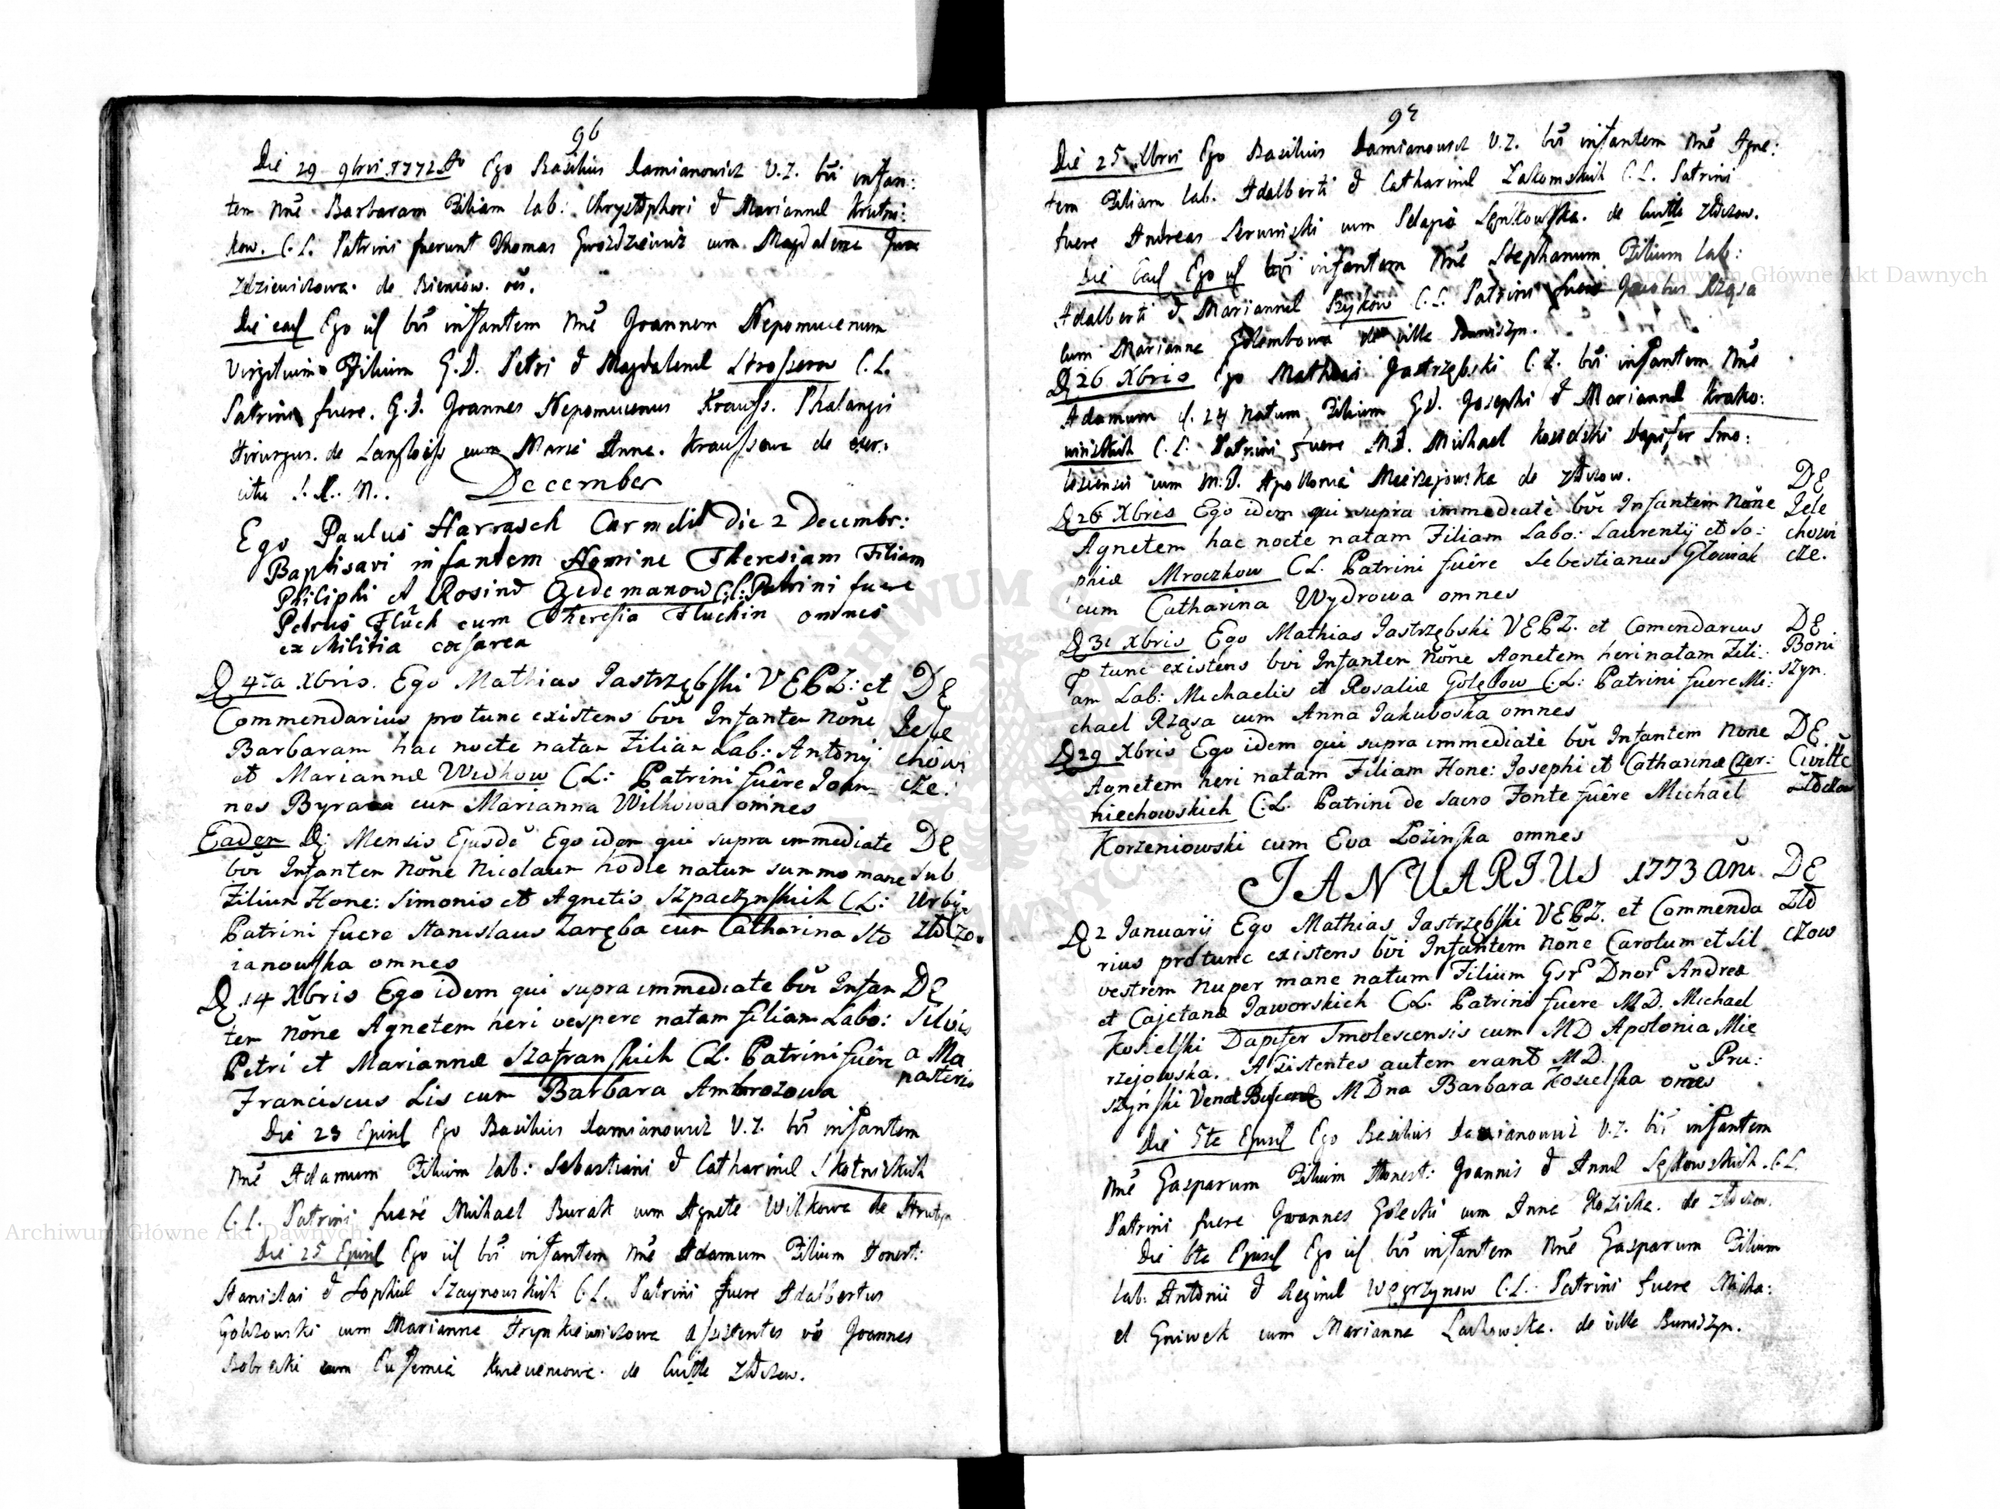 96
Die 29 9bris 1772 Ao Ego Basilius Damianowicz V.Z. bũ infan:
tem Nñe Barbaram Filiam lab: Chrystophori & Mariannæ Krutni:
kow. C.L. Patrini fuerunt Thomas Gwozdziewicz cum Magdalena Gwo
zdziewiczowa. de Bieniow. oẽs.
Die eadĩ Ego iĩ bũ infantem Nñe Joannem Nepomucenum
Virgilium Filium G.D. Petri & Magdalenæ Strosserow C.L.
Patrini fuere. G.D. Joannes Nepomucenus Krauss. Phalangis
Hirurgus. de cum Maria Anna. Kraussowa de exer:
citu
December
Ego Paulus Harrasch Carmelit Die 2 Decembr:
Baptisavi infantem Nomine Theresiam Filiam
Philiphi et Rosinæ Gedemanow C:L: Patrini fuere
Petrus Flück cum Theresia Fluckin omnes
ex Militia cæsarea
D. 4ta Xbris. Ego Mathias Jastrzębski VECZ: et
Commendarius pro tunc existens bũi Infantem Nõñe
Barbaram hac nocte natam Filiam Lab: Antonij
et Mariannæ Widkow CL: Patrini fuêre Joan-
nes Byra cum Marianna Wilkowa omnes
DE
Jele
chowi
cze.
Eadem D. Mensis Ejusdẽ Ego idem qui supra immediate
bũi Infantem Nõñe Nicolaum hodie natum summo mane
Filium Hone: Simonis et Agnetis Szpaczynskich CL:
Patrini fuere Stanislaus Zaręba cum Catharina Sto
ianowska omnes
DE
sub
Urbije
Złoczo.
D. 14 Xbris Ego idem qui supra immediate bũi Infan
tem Nõñe Agnetem heri vespere natam filiam Labo:
Petri et Mariannæ Szafranskich CL. Patrini fuêre
Franciscus Lis cum Barbara Ambrozowa
DE
Silvis
a Mo
nasterio
Die 23 Ejusd Ego Basilius Damianowicz V.Z. bũ infantem
Nñe Adamum Filium lab: Sebastiani & Catharinæ Skotnickich
C.L. Patrini fuere Michael Burak cum Agnete Wilkowa de
Die 25 Ejusd Ego iĩ bũ infantem Nñe Adamum Filium Honest:
Stanislai & Sophiæ Szaynowskich C.L. Patrini fuere Adalbertus
Golczowski cum Marianna Frynkiewiczowa assistentes vo Joannes
Sobreski cum Eufemia de Civitte Złoczow.
97
Die 25 Xbris Ego Basilius Damianowicz V.Z. bũ infantem Nñe Agne:
tem Filiam lab. Adalberti & Catharinæ Zakomskich C.L. Patrini
fuere Andreas Serwinski cum Pelagia Sękowska. de Civitte Złoczow.
Die Ead Ego iĩ bũ infantem Nñe Stephanum Filium lab:
Adalberti & Mariannæ Bykow C.L. Patrini fuere Jacobus Rząsa
cum Marianna Gołembowa de ville Boniszyn.
D. 26 Xbris Ego Mathias Jastrzębski C.Z. bũi infantem Nñe
Adamum d. 24 natum Filium GD. Josephi & Mariannæ Krako:
winskich C.L. Patrini fuere M.D. Michael Kosielski Dapifer Smo:
lescensis cum M.D. Apollonia Mierzejowska de Złoczow.
D. 26 Xbris Ego idem qui supra immediatè bũi Infantem Nõñe
Agnetem hac nocte natam Filiam Labo: Laurentij et So:
phiæ Mroczkow CL. Patrini fuêre Sebestianus Głowiak
cum Catharina Wydrowa omnes
DE
Jele
chowi
cze.
D. 31 Xbris Ego Mathias Jastrzębski VECZ. et Comendarius
p tunc existens bũi Infantem Nõñe Agnetem heri natam Fili:
am Lab: Michaelis et Rosaliæ Gołębow CL: Patrini fuere Mi:
chael Rząsa cum Anna Jakuboska omnes
DE
Boni
szyn.
D. 29 Xbris Ego idem qui supra immediatè bũi Infantem Nõñe
Agnetem heri natam Filiam Hone: Josephi et Catharinæ Czer:
niechowskich C:L. Patrini de Sacro Fonte fuêre Michael
Korzeniowski cum Eva Łozinska omnes
DE
Civitte
Złoczow
JANUARIUS 1773 Añi
D. 2 Januarij Ego Mathias Jastrzębski VECZ. et Commenda
rius prótunc existens bũi Infantem Nõñe Carolum et Sil
vestrem nuper mane natum Filium Gsr Dnor Andreæ
et Cajetanæ Jaworskich CL. Patrini fuere M.D. Michael
Kosielski Dapifer Smolescensis cum MD Apolonia Mie
rzejowska. Assistentes autem erant MD. Pru:
szyński MDna Barbara Kosielska oẽs
DE
Zło
czow
Die 5ta Ejusd Ego Basilius Damianowicz V.Z. bũ infantem
Nñe Gasparum Filium Honest: Joannis & Annæ Sękowskich. C.L.
Patrini fuere Joannes Golecki cum Anna Kozicka. de Złoczow.
Die 6ta Ejusd Ego iĩ bũ infantem Nñe Gasparum Filium
lab. Antonii & Reginæ Węgrzynow C.L. Patrini fuere Micha:
el Gniwek cum Marianna Lachowska. de ville Boniszyn.
Archiwum Główne Akt Dawnych
Archiwum Główne Akt Dawnych